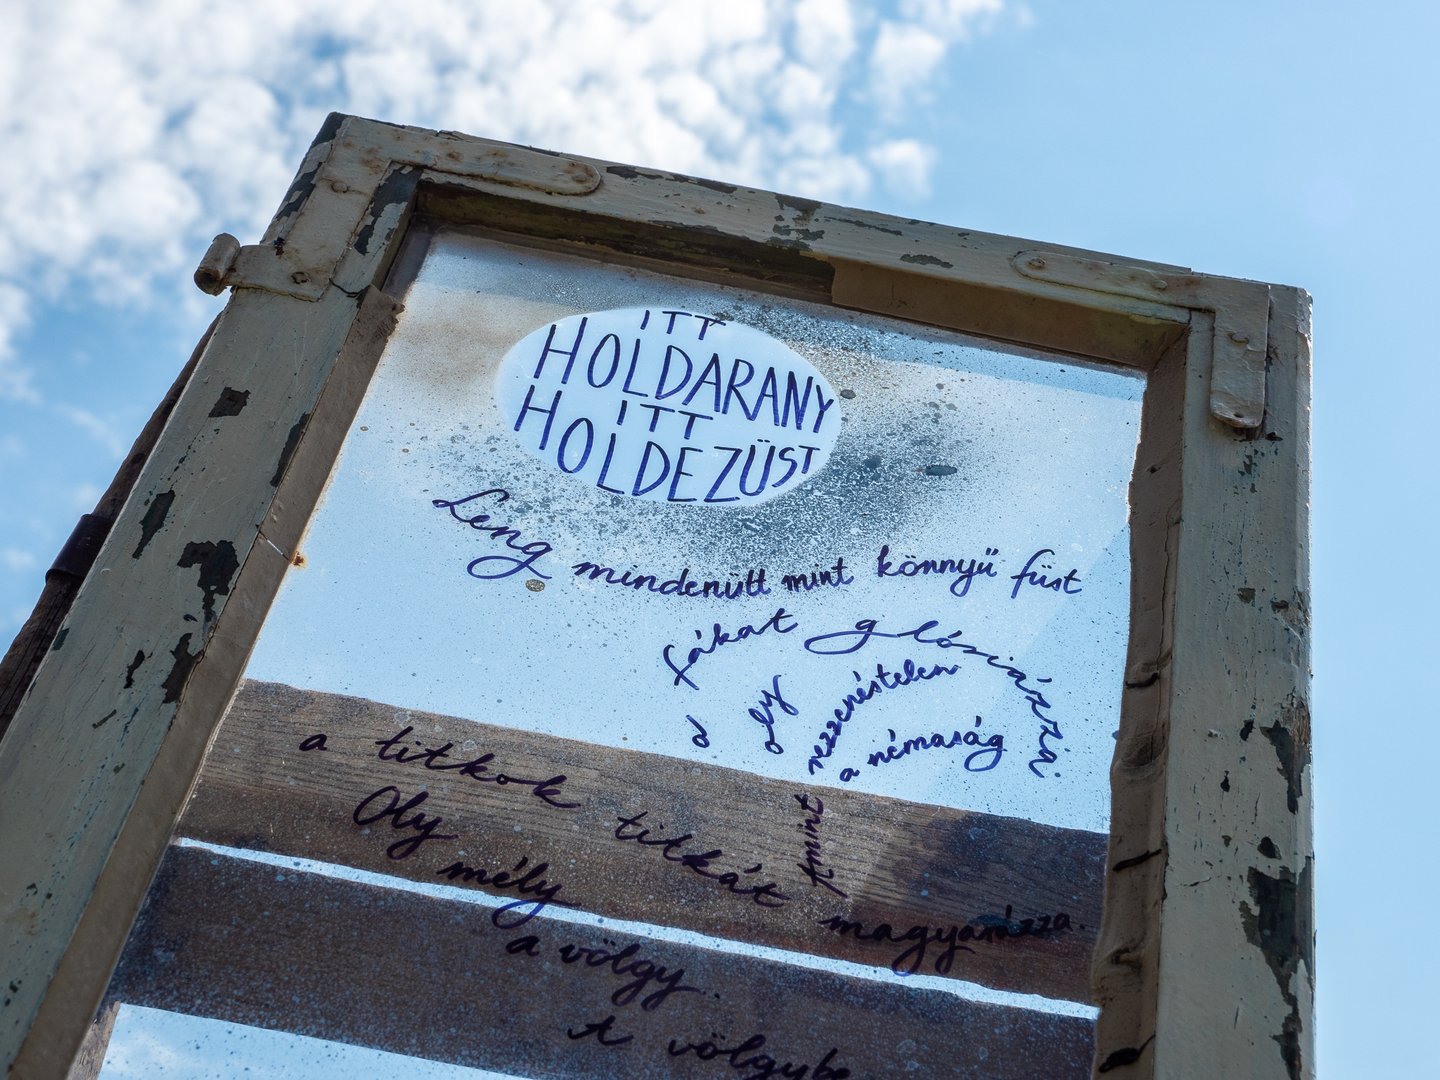 ITT
HOLDARANY
ITT
HOLDEZÜST
Leng mindenutt mint könnyű füst
a fákat glóriázza
oly rezzenéstelen
a némaság
Amint
a titkok titkát magyarázza.
Oly mély
a völgy.
A völgybe